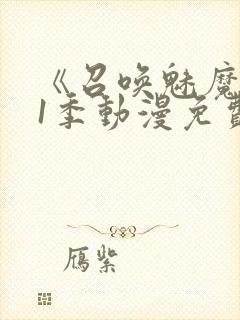 《召唤魅魔
1季動漫免費
鴈紫